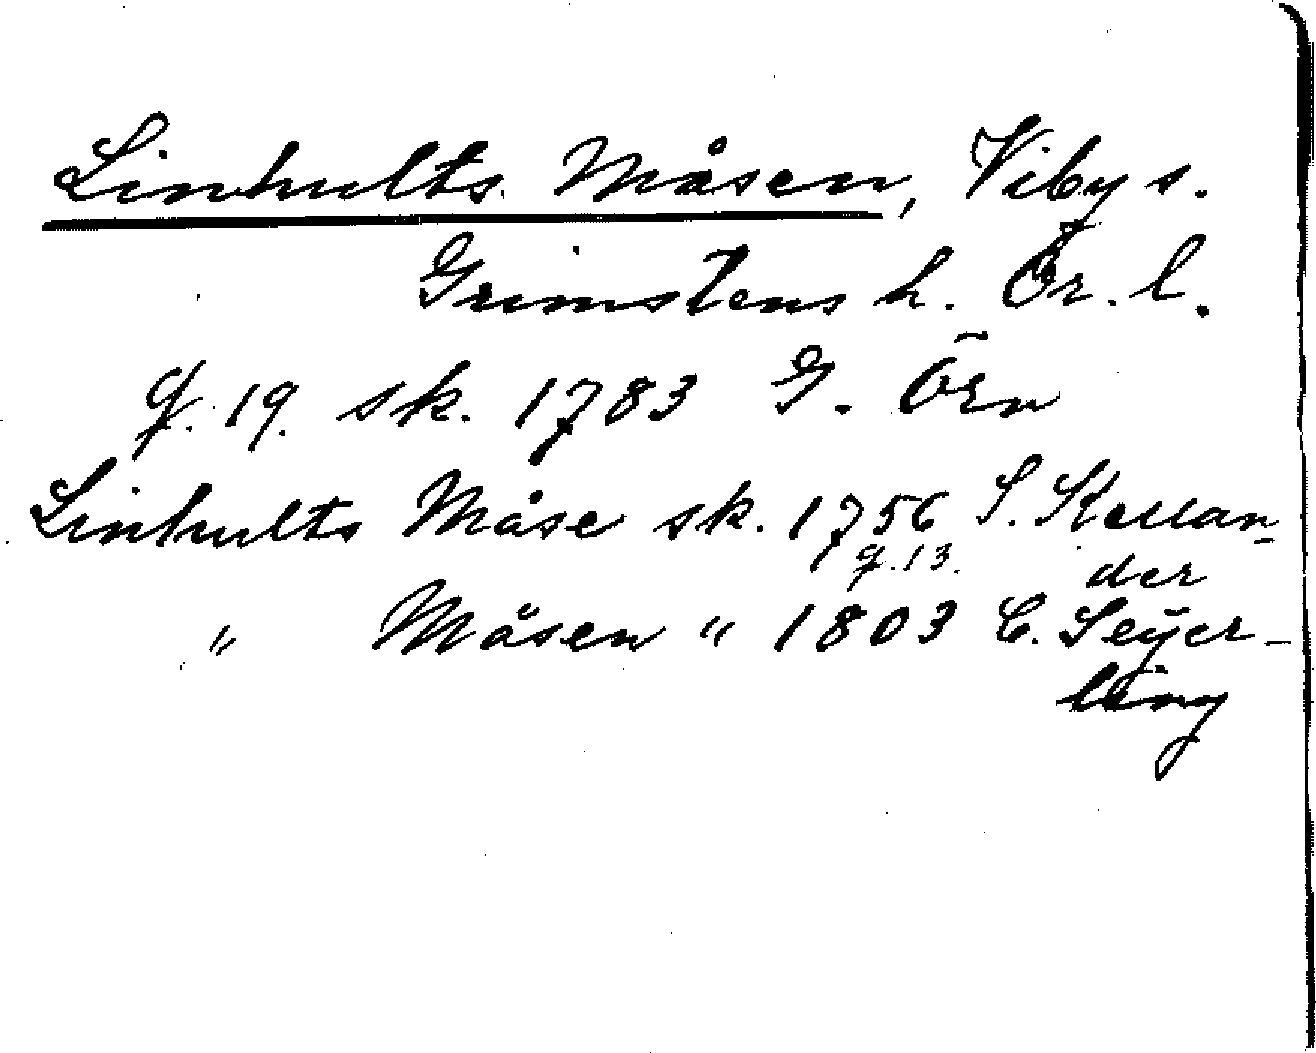 Linhults Måsen, Viby s.
Grimstens h. Ör. l.
g. 19. sk. 1783 G. Örn
Linhults Måse sk. 1756 S. Kellan-
g. 13. der
" Måsen " 1803 C. Seÿer-
ling